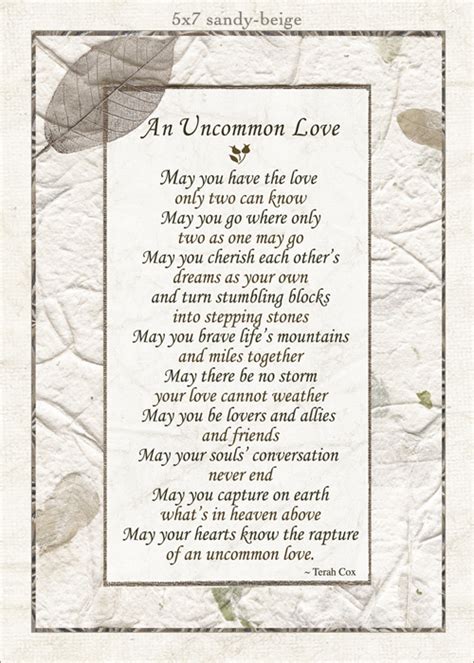 5x7 sandy-beige
An Uncommon Love
May you have the love
only two can know
May you go where only
two as one may go
May you cherish each other's
dreams as your own
and turn stumbling blocks
into stepping stones
May you brave life's mountains
and miles together
May there be no storm
your love cannot weather
May you be lovers and allies
and friends
May your souls' conversation
never end
May you capture on earth
what's in heaven above
May your hearts know the rapture
of an uncommon love.
~ Terah Cox